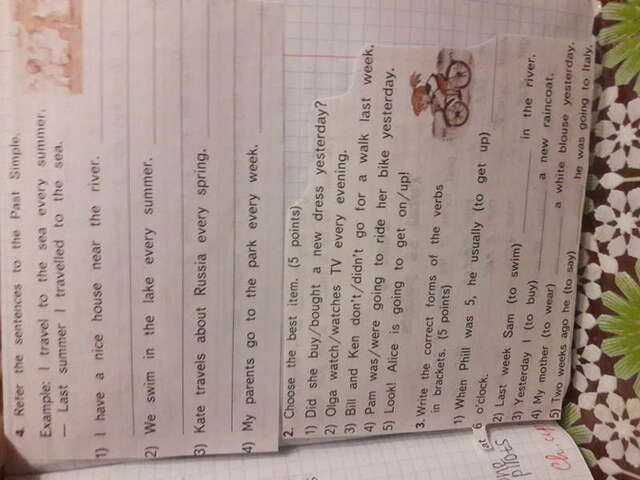 4. Refer the sentences to the Past Simple.
Example: I travel to the sea every summer.
— Last summer I travelled to the sea.
1) I have a nice house near the river.
2) We swim in the lake every summer.
3) Kate travels about Russia every spring.
4) My parents go to the park every week.
2. Choose the best item. (5 points)
1) Did she buy/bought a new dress yesterday?
2) Olga watch/watches TV every evening.
3) Bill and Ken don't/didn't go for a walk last week.
4) Pam was/were going to ride her bike yesterday.
5) Look! Alice is going to get on/up!
3. Write the correct forms of the verbs
in brackets. (5 points)
1) When Phill was 5, he usually (to get up)
at 6
o'clock.
2) Last week Sam (to swim) in the river.
3) Yesterday I (to buy) a new raincoat.
4) My mother (to wear) a white blouse yesterday.
5) Two weeks ago he (to say) he was going to Italy.